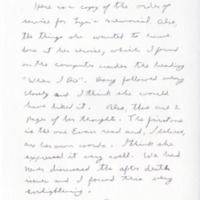 Here is a copy of the order of
service for Lyn's memorial. Also,
the things she wanted to have
done at her service, which I found
on the computer under the heading
"When I Die". Doug followed very
closely and I think she would
have liked it. Also, there are 2
pages of her thoughts. The first one
is the one Evan read and, I believe,
are her own words. I think she
expressed it very well. We had
never discussed the after death
issue and I found this very
enlightening.